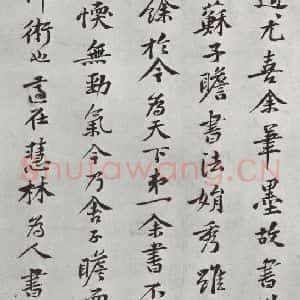 尤喜余筆墨故書
蘇子瞻書法娟秀雖
餘於今為天下第一余書不
愞無勁氣今乃舍子瞻而
術也適在慧林為人書
Shufawang.CN